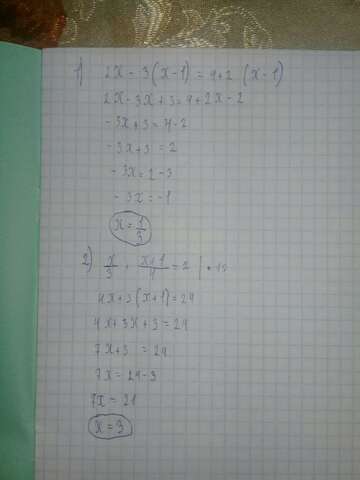 1) 2x - 3(x-1) = 4+2 (x-1)
2x-3x+3=4+2x-2
-3x+3=4-2
-3x+3=2
-3x=2-3
-3x=-1
x=1/3
2) x/3 + x+1/4 = 2 | • 12
4x+3(x+1)=24
4x+3x+3=24
7x+3 = 24
7x=24-3
7x=21
x=3